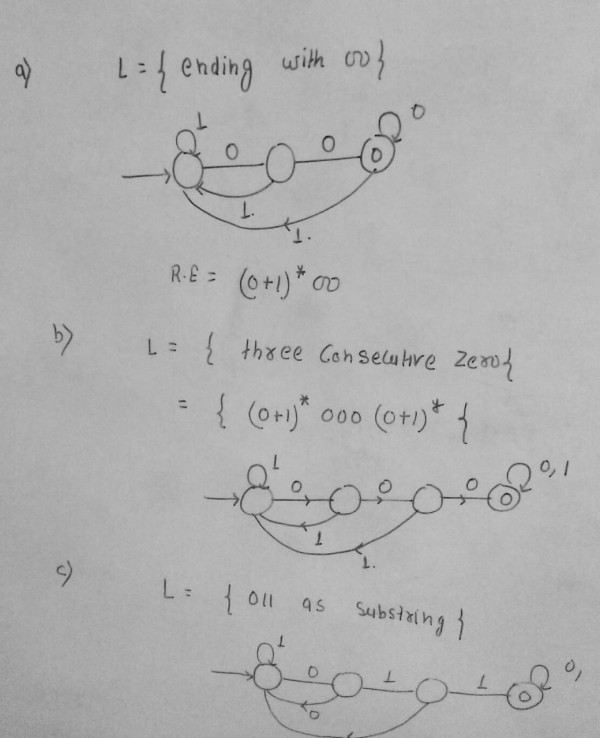 a) L = { ending with 00}
1 0 0 0
1.
1.
R.E = (0+1)* 00
b) L = { three Consecutive Zero{
= { (0+1)* 000 (0+1)* {
1 0 0 0 0,1
1
1.
c) L = { 011 as substring }
1 0 1 1 0,
0